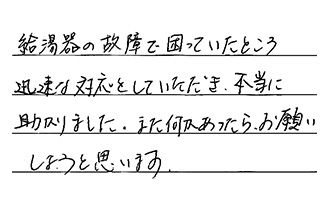 給湯器の故障で困っていたところ
迅速な対応をしていただき、本当に
助かりました。また何かあったら、お願い
しようと思います。